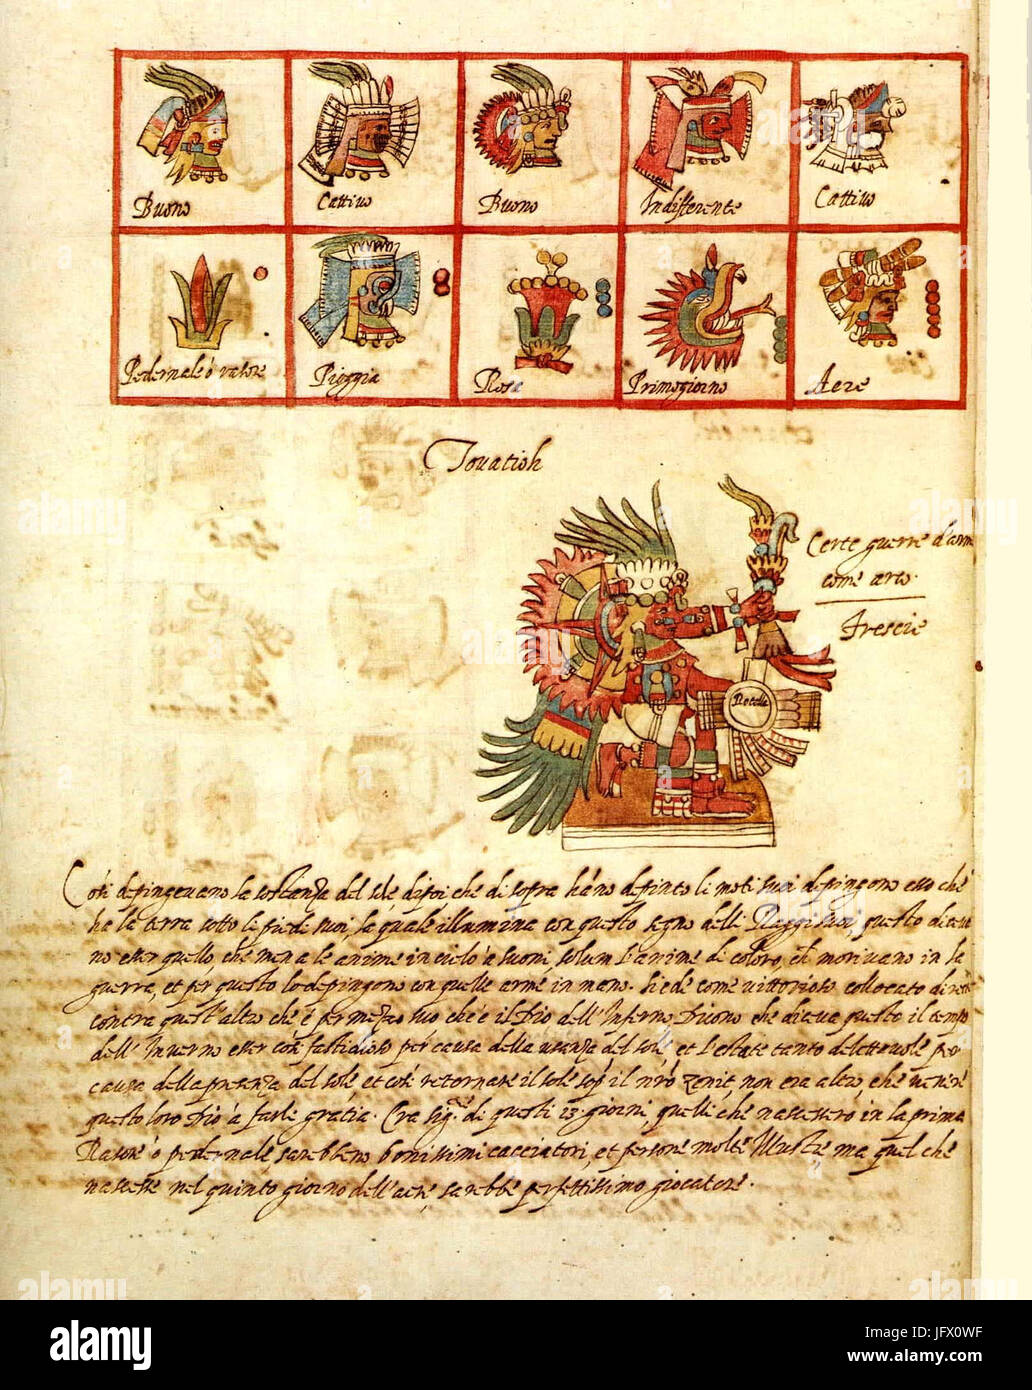 Buono Cattivo Buono Indifferente Cattivo
Pedernale ó rasore Pioggia Rosa Primogiorno Aere
Tonatioh
Certe guerre d'arm
come arco.
Frescie
Rotella
Cosi depingevano la sostanza del sole dipoi che di sopra hano depinto li moti suoi depingono esso ché
ha la terra sotto li piedi suoi, la quale illumina con questo segno delli Raggi suoi, questo diceva
no esser quello, che mena le anime in cielo, solum l'anime di coloro, ch morivano in la
guerra, et per questo lo depingono con quelle arme in mano. Siede come vittorioso collocato di
contra quest'altro che é per mezzo suo ché é il Dio dell'Inferno. Dicono che diceva questo il tempo
dell'Inverno esser cosi fastidioso per causa della del sole, et l'estate tanto delettevole per
causa della presenza del sole, et cosi retornare il sole sop il nrõ zenit, non era altro, ché venire
questo loro Dio á farle gratia. Era di questi 13. giorni, quelli ché nascessero in la prima
Rasore ó pedernale sarebbero bonissimi cacciatori, et persone molte Illustre ma quel ché
nascesse nel quinto giorno dell'aere, sarebbe perfettissimo giocatore.
alamy
Image ID: JFX0WF
www.alamy.com